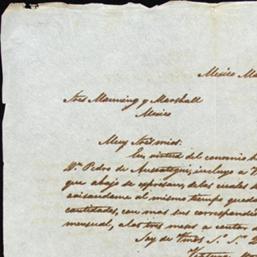 Mexico Ma
Sres Manning y Marshall
Mexico
Muy Sres mios.
En virtud del convenio h
Dn. Pedro de incluyo a V
que abajo se espresan, delas cuales d
avisandome al mismo tiempo queda
cantidades, con mas sus correspondie
mensual, a los tres meses a contar d
Soy de Vmds S. S.